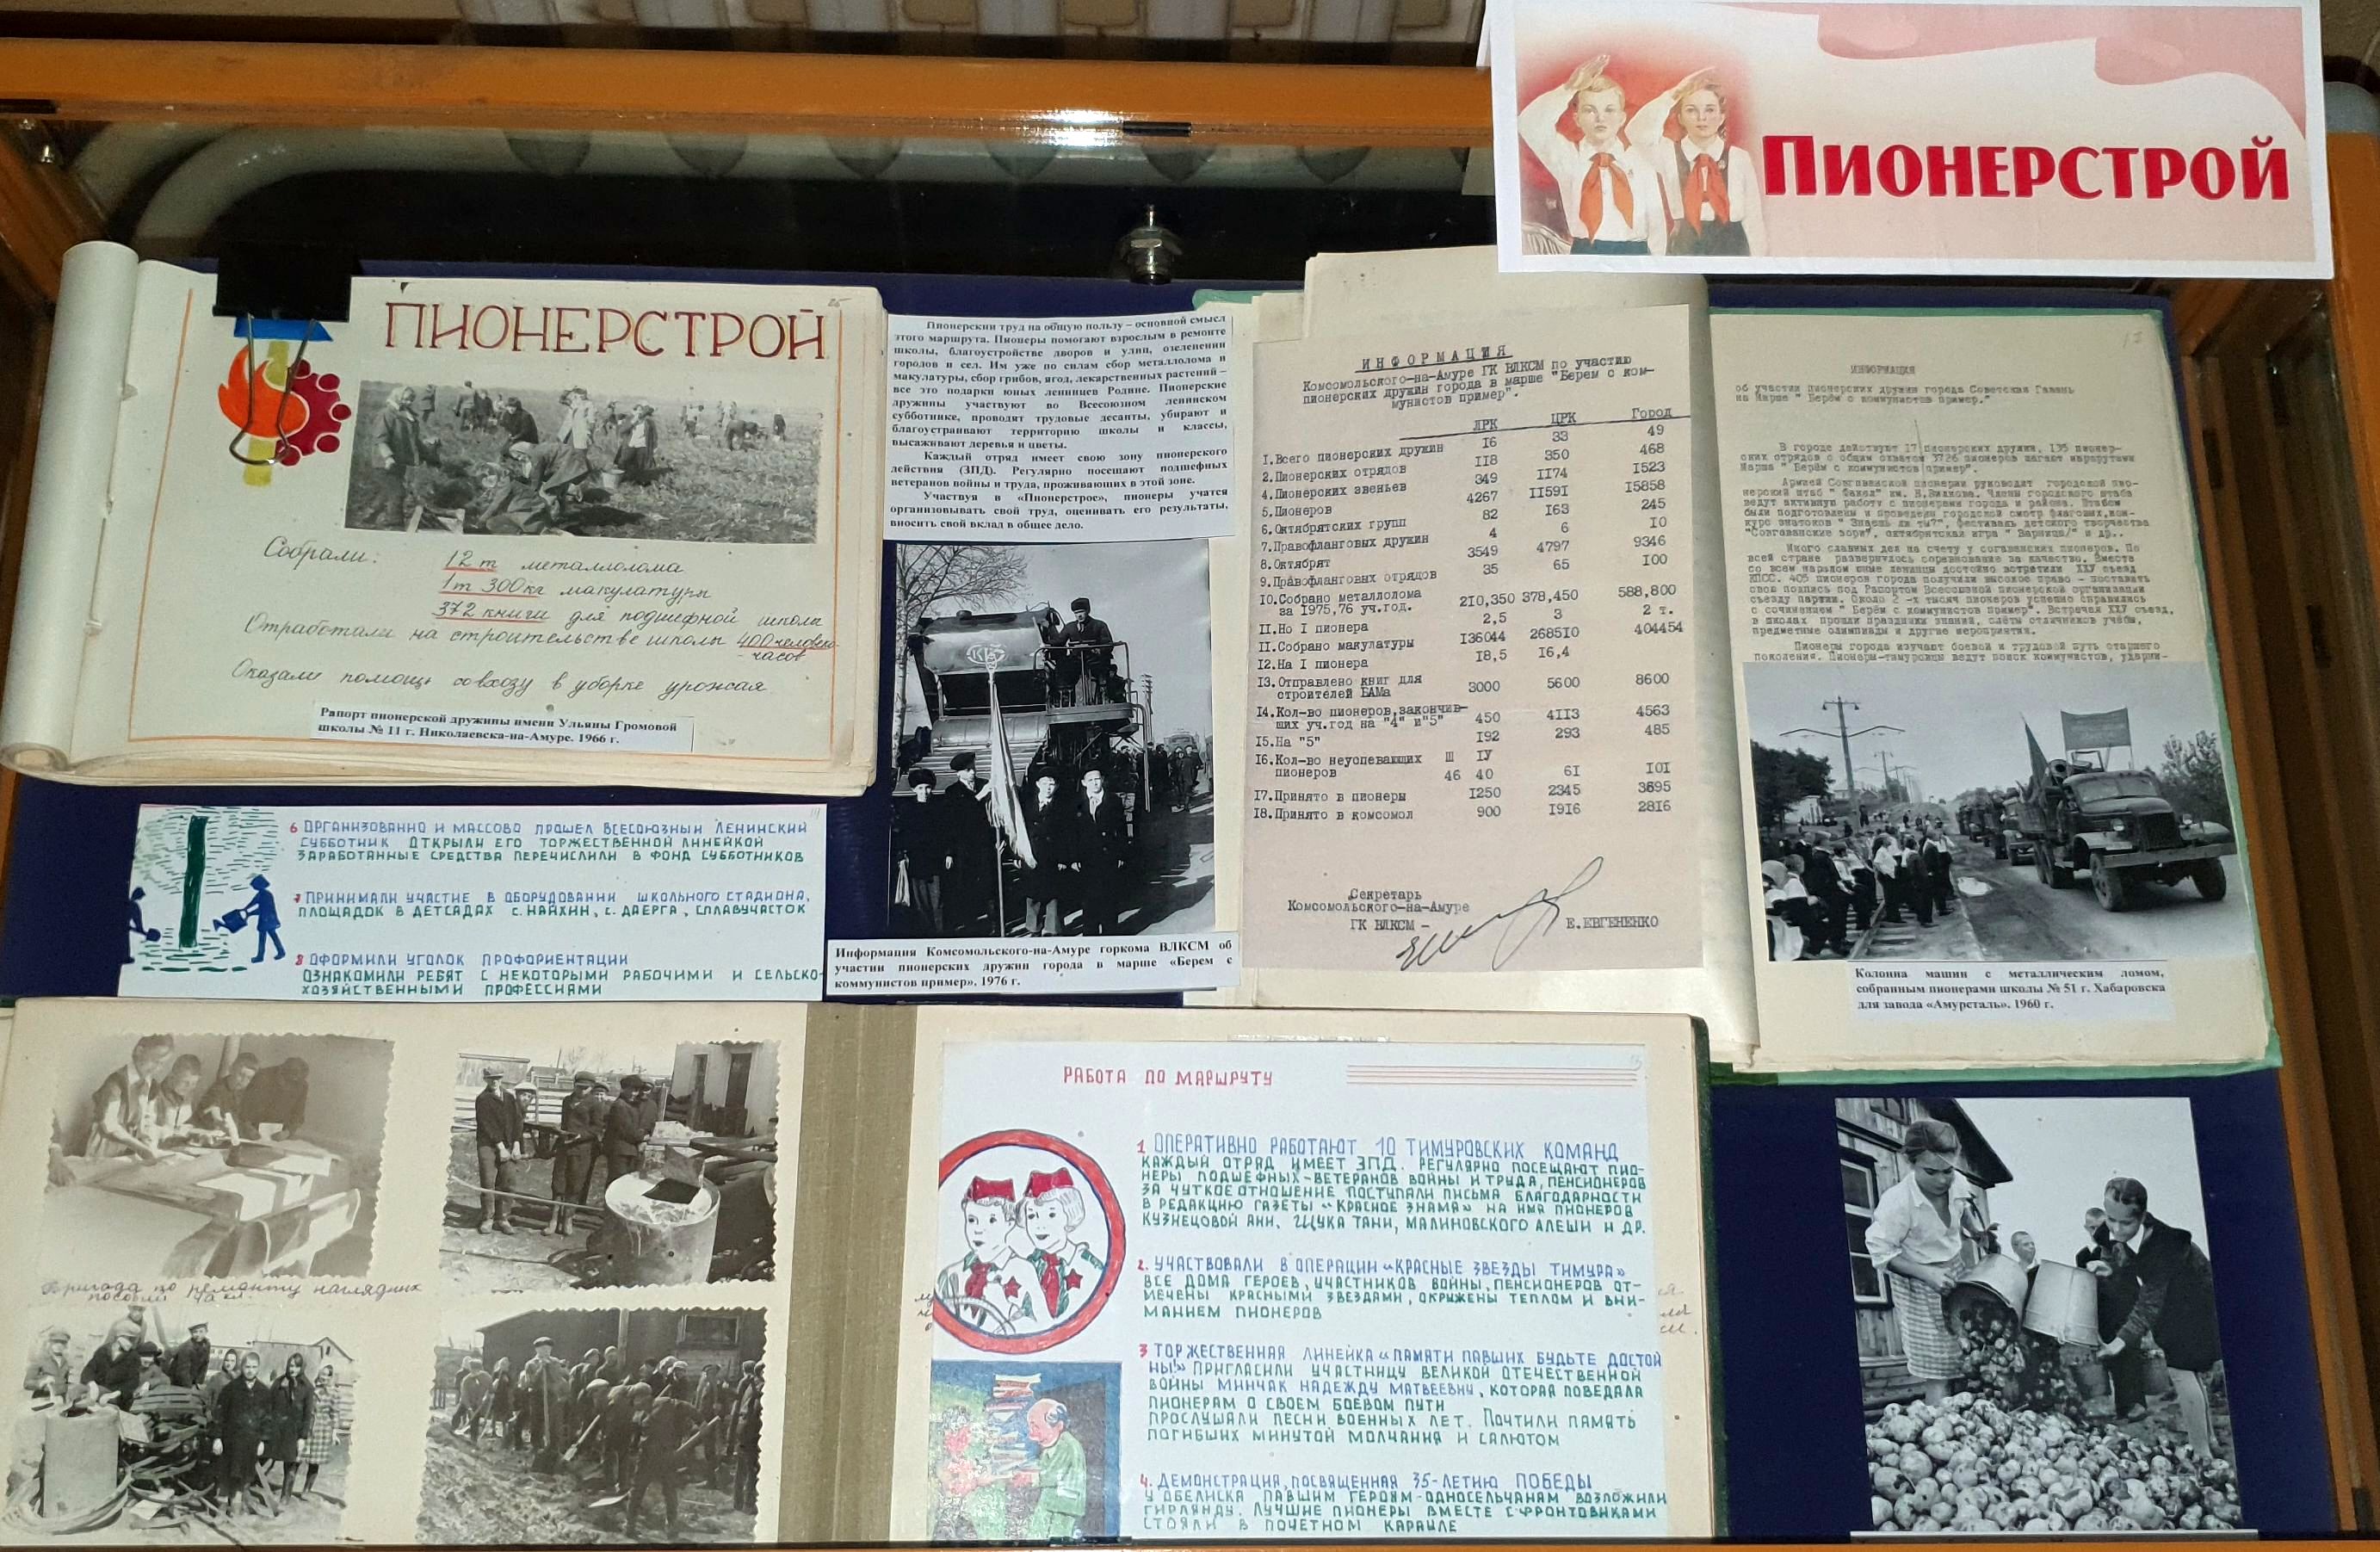 Пионерстрой
ПИОНЕРСТРОЙ
Собрали: 12 т металлолома
1т 300кг макулатуры
372 книги для подшефной школы
Отработали на строительстве школы 400 человеко-
- часов
Оказали помощь совхозу в уборке урожая
Рапорт пионерской дружины имени Ульяны Громовой
школы № 11 г. Николаевска-на-Амуре. 1966 г.
Пионерский труд на общую пользу – основной смысл
этого маршрута. Пионеры помогают взрослым в ремонте
школы, благоустройстве дворов и улиц, озеленении
городов и сел. Им уже по силам сбор металлолома и
макулатуры, сбор грибов, ягод, лекарственных растений –
все это подарки юных ленинцев Родине. Пионерские
дружины участвуют во Всесоюзном ленинском
субботнике, проводят трудовые десанты, убирают и
благоустраивают территорию школы и классы,
высаживают деревья и цветы.
Каждый отряд имеет свою зону пионерского
действия (ЗПД). Регулярно посещают подшефных
ветеранов войны и труда, проживающих в этой зоне.
Участвуя в «Пионерстрое», пионеры учатся
организовывать свой труд, оценивать его результаты,
вносить свой вклад в общее дело.
Информация Комсомольского-на-Амуре горкома ВЛКСМ об
участии пионерских дружин города в марше «Берем с
коммунистов пример». 1976 г.
ИНФОРМАЦИЯ
Комсомольского-на-Амуре ГК ВЛКСМ по участию
пионерских дружин города в марше "Берем с ком-
мунистов пример".
ЛРК ЦРК Город
1.Всего пионерских дружин 16 33 49
2.Пионерских отрядов 118 350 468
4.Пионерских звеньев 349 1174 1523
5.Пионеров 4267 11591 15858
6.Октябрятских групп 82 163 245
7.Правофланговых дружин 4 6 10
8.Октябрят 3549 4797 9346
9.Правофланговых отрядов 35 65 100
10.Собрано металлолома
за 1975,76 уч.год. 210,350 378,450 588,800
11.Но 1 пионера 2,5 3 2 т.
11.Собрано макулатуры 136044 268510 404454
12.На 1 пионера 18,5 16,4
13.Отправлено книг для
строителей БАМа 3000 5600 8600
14.Кол-во пионеров,закончив-
ших уч.год на "4" и"5" 450 4113 4563
15.На "5" 192 293 485
16.Кол-во неуспевающих Ш IУ
пионеров 46 40 61 101
17.Принято в пионеры 1250 2345 3695
18.Принято в комсомол 900 1916 2816
Секретарь
Комсомольского-на-Амуре
ГК ВЛКСМ – Е.ЕВГЕНЕНКО
ИНФОРМАЦИЯ
об участии пионерских дружин города Советская Гавань
на Марше " Берём с коммунистов пример."
В городе действуют 17 пионерских дружин, 135 пионер-
ских отрядов с общим охватом 3726 пионеров шагают маршрутами
Марша " Берём с коммунистов пример".
Армией Совгаванской пионерии руководит городской пио-
нерский штаб " Факел" им. Члены городского штаба
ведут активную работу с пионерами города и района. Штабом
были подготовлены и проведены городской смотр флаговых, кон-
курс знатоков " Знаешь ли ты?", фестиваль детского творчества
"Совгаванские зори", октябрятская игра и др..
Много славных дел на счету у согаванских пионеров. По
всей стране развернулось соревнование за качество. Вместе
со всем народом юные ленинцы достойно встретили ХХУ съезд
КПСС. 405 пионеров города получили высокое право - поставить
свою подпись под Рапортом Всесоюзной пионерской организации
съезду партии. Около 2 -х тысяч пионеров успешно справились
с сочинением " Берём с коммунистов пример". Встречая ХХУ съезд,
в школах прошли праздники знаний, слёты отличников учёбы,
предметные олимпиады и другие мероприятия.
Пионеры города изучают боевой и трудовой путь старшего
поколения. Пионеры-тимуровцы ведут поиск коммунистов, ударни-
Колонна машин с металлическим ломом,
собранным пионерами школы № 51 г. Хабаровска
для завода «Амурсталь». 1960 г.
6 ОРГАНИЗОВАННО И МАССОВО ПРОШЕЛ ВСЕСОЮЗНЫЙ ЛЕНИНСКИЙ
СУББОТНИК ОТКРЫЛИ ЕГО ТОРЖЕСТВЕННОЙ ЛИНЕЙКОЙ
ЗАРАБОТАННЫЕ СРЕДСТВА ПЕРЕЧИСЛИЛИ В ФОНД СУББОТНИКОВ
7 ПРИНИМАЛИ УЧАСТИЕ В ОБОРУДОВАНИИ ШКОЛЬНОГО СТАДИОНА,
ПЛОЩАДОК В ДЕТСАДАХ С. НАЙХИН, С. ДАЕРГА, СПЛАВУЧАСТОК
8 ОФОРМИЛИ УГОЛОК ПРОФОРИЕНТАЦИИ
ОЗНАКОМИЛИ РЕБЯТ С НЕКОТОРЫМИ РАБОЧИМИ И СЕЛЬСКО-
ХОЗЯЙСТВЕННЫМИ ПРОФЕССИЯМИ
Бригада по ремонту наглядных
пособий 4а кл.
РАБОТА ПО МАРШРУТУ
1 ОПЕРАТИВНО РАБОТАЮТ 10 ТИМУРОВСКИХ КОМАНД
КАЖДЫЙ ОТРЯД ИМЕЕТ ЗПД. РЕГУЛЯРНО ПОСЕЩАЮТ ПИО-
НЕРЫ ПОДШЕФНЫХ-ВЕТЕРАНОВ ВОЙНЫ И ТРУДА, ПЕНСИОНЕРОВ
ЗА ЧУТКОЕ ОТНОШЕНИЕ ПОСТУПАЛИ ПИСЬМА БЛАГОДАРНОСТИ
В РЕДАКЦИЮ ГАЗЕТЫ «КРАСНОЕ ЗНАМЯ» НА ИМЯ ПИОНЕРОВ
КУЗНЕЦОВОЙ АНИ, ЩУКА ТАНИ, МАЛИНОВСКОГО АЛЕШИ И ДР.
2. УЧАСТВОВАЛИ В ОПЕРАЦИИ «КРАСНЫЕ ЗВЕЗДЫ ТИМУРА»
ВСЕ ДОМА ГЕРОЕВ, УЧАСТНИКОВ ВОЙНЫ, ПЕНСИОНЕРОВ ОТ-
МЕЧЕНЫ КРАСНЫМИ ЗВЕЗДАМИ, ОКРУЖЕНЫ ТЕПЛОМ И ВНИ-
МАНИЕМ ПИОНЕРОВ
3 ТОРЖЕСТВЕННАЯ ЛИНЕЙКА «ПАМЯТИ ПАВШИХ БУДЬТЕ ДОСТОЙ
НЫ!» ПРИГЛАСИЛИ УЧАСТНИЦУ ВЕЛИКОЙ ОТЕЧЕСТВЕННОЙ
ВОЙНЫ МИНЧАК НАДЕЖДУ МАТВЕЕВНУ, КОТОРАЯ ПОВЕДАЛА
ПИОНЕРАМ О СВОЕМ БОЕВОМ ПУТИ
ПРОСЛУШАЛИ ПЕСНИ ВОЕННЫХ ЛЕТ. ПОЧТИЛИ ПАМЯТЬ
ПОГИБШИХ МИНУТОЙ МОЛЧАНИЯ И САЛЮТОМ
4. ДЕМОНСТРАЦИЯ, ПОСВЯЩЕННАЯ 35-ЛЕТИЮ ПОБЕДЫ
У ОБЕЛИСКА ПАВШИМ ГЕРОЯМ-ОДНОСЕЛЬЧАНАМ ВОЗЛОЖИЛИ
ГИРЛЯНДУ. ЛУЧШИЕ ПИОНЕРЫ ВМЕСТЕ С ФРОНТОВИКАМИ
СТОЯЛИ В ПОЧЕТНОМ КАРАУЛЕ